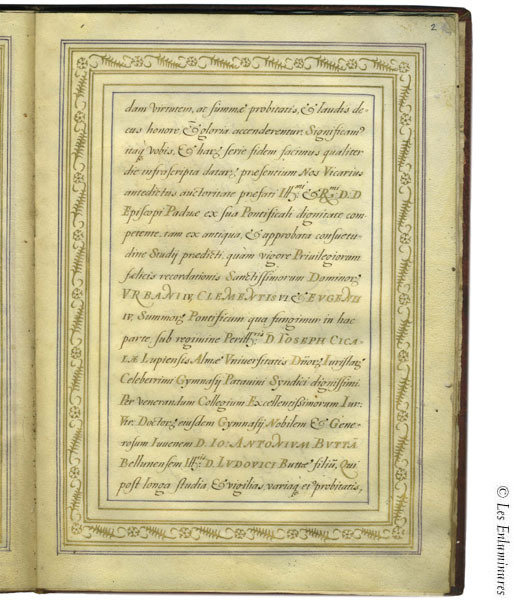 2
dam virtutem, ac summæ probitatis, & laudis de-
cus honore & gloria accenderentur. Significam9
itaq vobis, & harꝝ serie fidem facimus qualiter
die infrascripta datarꝝ præsentium Nos Vicarius
antedictus auctoritate præfati Ill.mi & R.mi D. D
Episcopi Paduæ ex sua Pontificali dignitate com-
petente, tam ex antiqua, & approbata consuetu-
dine Studij prædicti, quam vigore Priuilegiorum
fælicis recordationis Sanctissimorum Dominorꝝ
VRBANI IV, CLEMENTIS VI & EVGENII
IV, Summorꝝ Pontificum qua fungimur in hac
parte sub regimine Perill.ris D. IOSEPH CICA-
LÆ Lupiensis Almæ Vniuersitatis Dñorꝝ Iuristarꝝ
Celeberrimi Gymnasij Patauini Syndici dignissimi.
Per venerandum Collegium Excellentissimorum Iur.
Vtr. Doctorꝝ eiusdem Gymnasij Nobilem & Gene-
rosum Iuuenem D. IO: ANTONIVM BVTTĀ
Bellunensem Ill.ris D. LVDOVICI Buttæ filiū, Qui
post longa studia & vigilias, variaq et probitatis,
© Les Enluminures